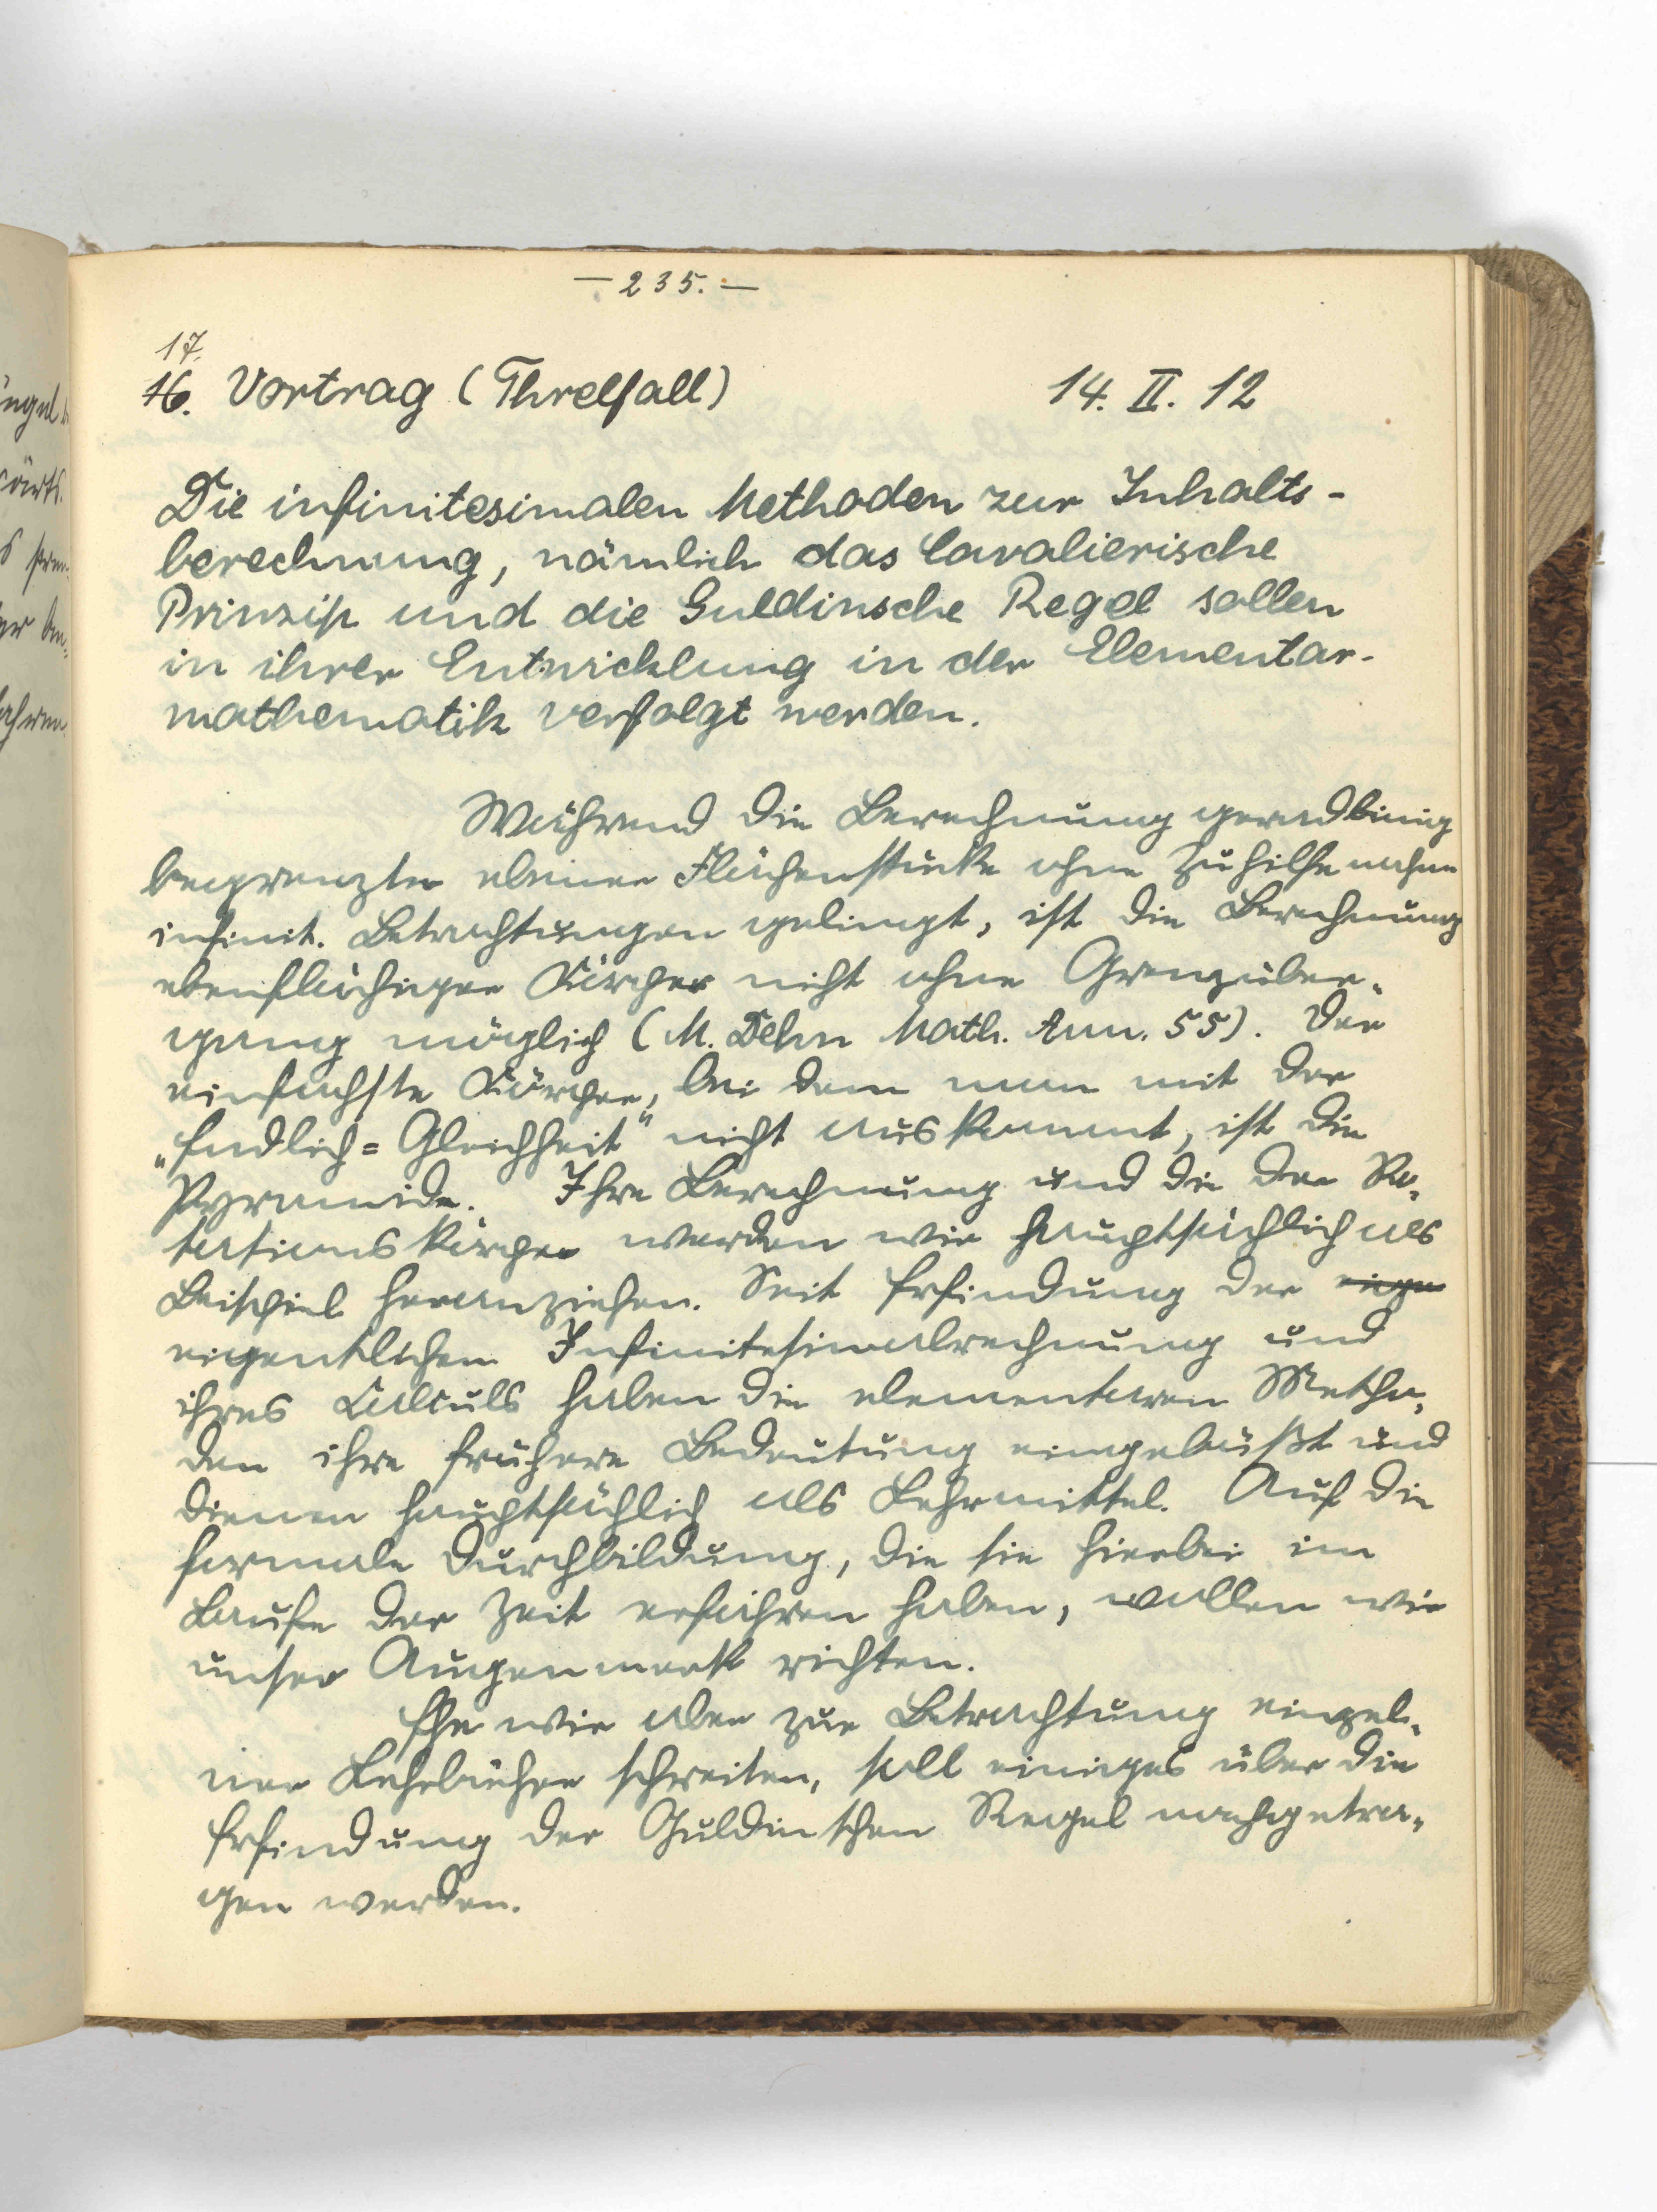 — 235. —
17.
16. Vortrag (Threlfall) 14. II. 12
Die infinitesimalen Methoden zur Inhalts-
berechnung, nämlich das Cavalierische
Prinzip und die Guldinsche Regel sollen
in ihrer Entwicklung in der Elementar-
mathematik verfolgt werden.
Während die Berechnung geradlinig
begrenzter ebener Flächenstücke ohne Zuhilfenahme
infinit. Betrachtungen gelingt, ist die Berechnung
ebenflächiger Körper nicht ohne Grenzüber-
gang möglich (M. Dehn Math. Ann. 55). Der
einfachste Körper, bei dem man mit der
„Endlich=Gleichheit“ nicht auskommt, ist die
Pyramide. Ihre Berechnung und die der Ro-
tationskörper werden wir hauptsächlich als
Beispiel heranziehen. Seit Erfindung der eige
eigentlichen Infinitesimalrechnung und
ihres Calculs haben die elementaren Metho-
den ihre frühere Bedeutung eingebüßt und
dienen hauptsächlich als Lehrmittel. Auf die
formale Durchbildung, die sie hierbei im
Laufe der Zeit erfahren haben, wollen wir
unser Augenmerk richten.
Ehe wir aber zur Betrachtung einzel-
ner Lehrbücher schreiten, soll einiges über die
Erfindung der Guldinschen Regel nachgetra-
gen werden.